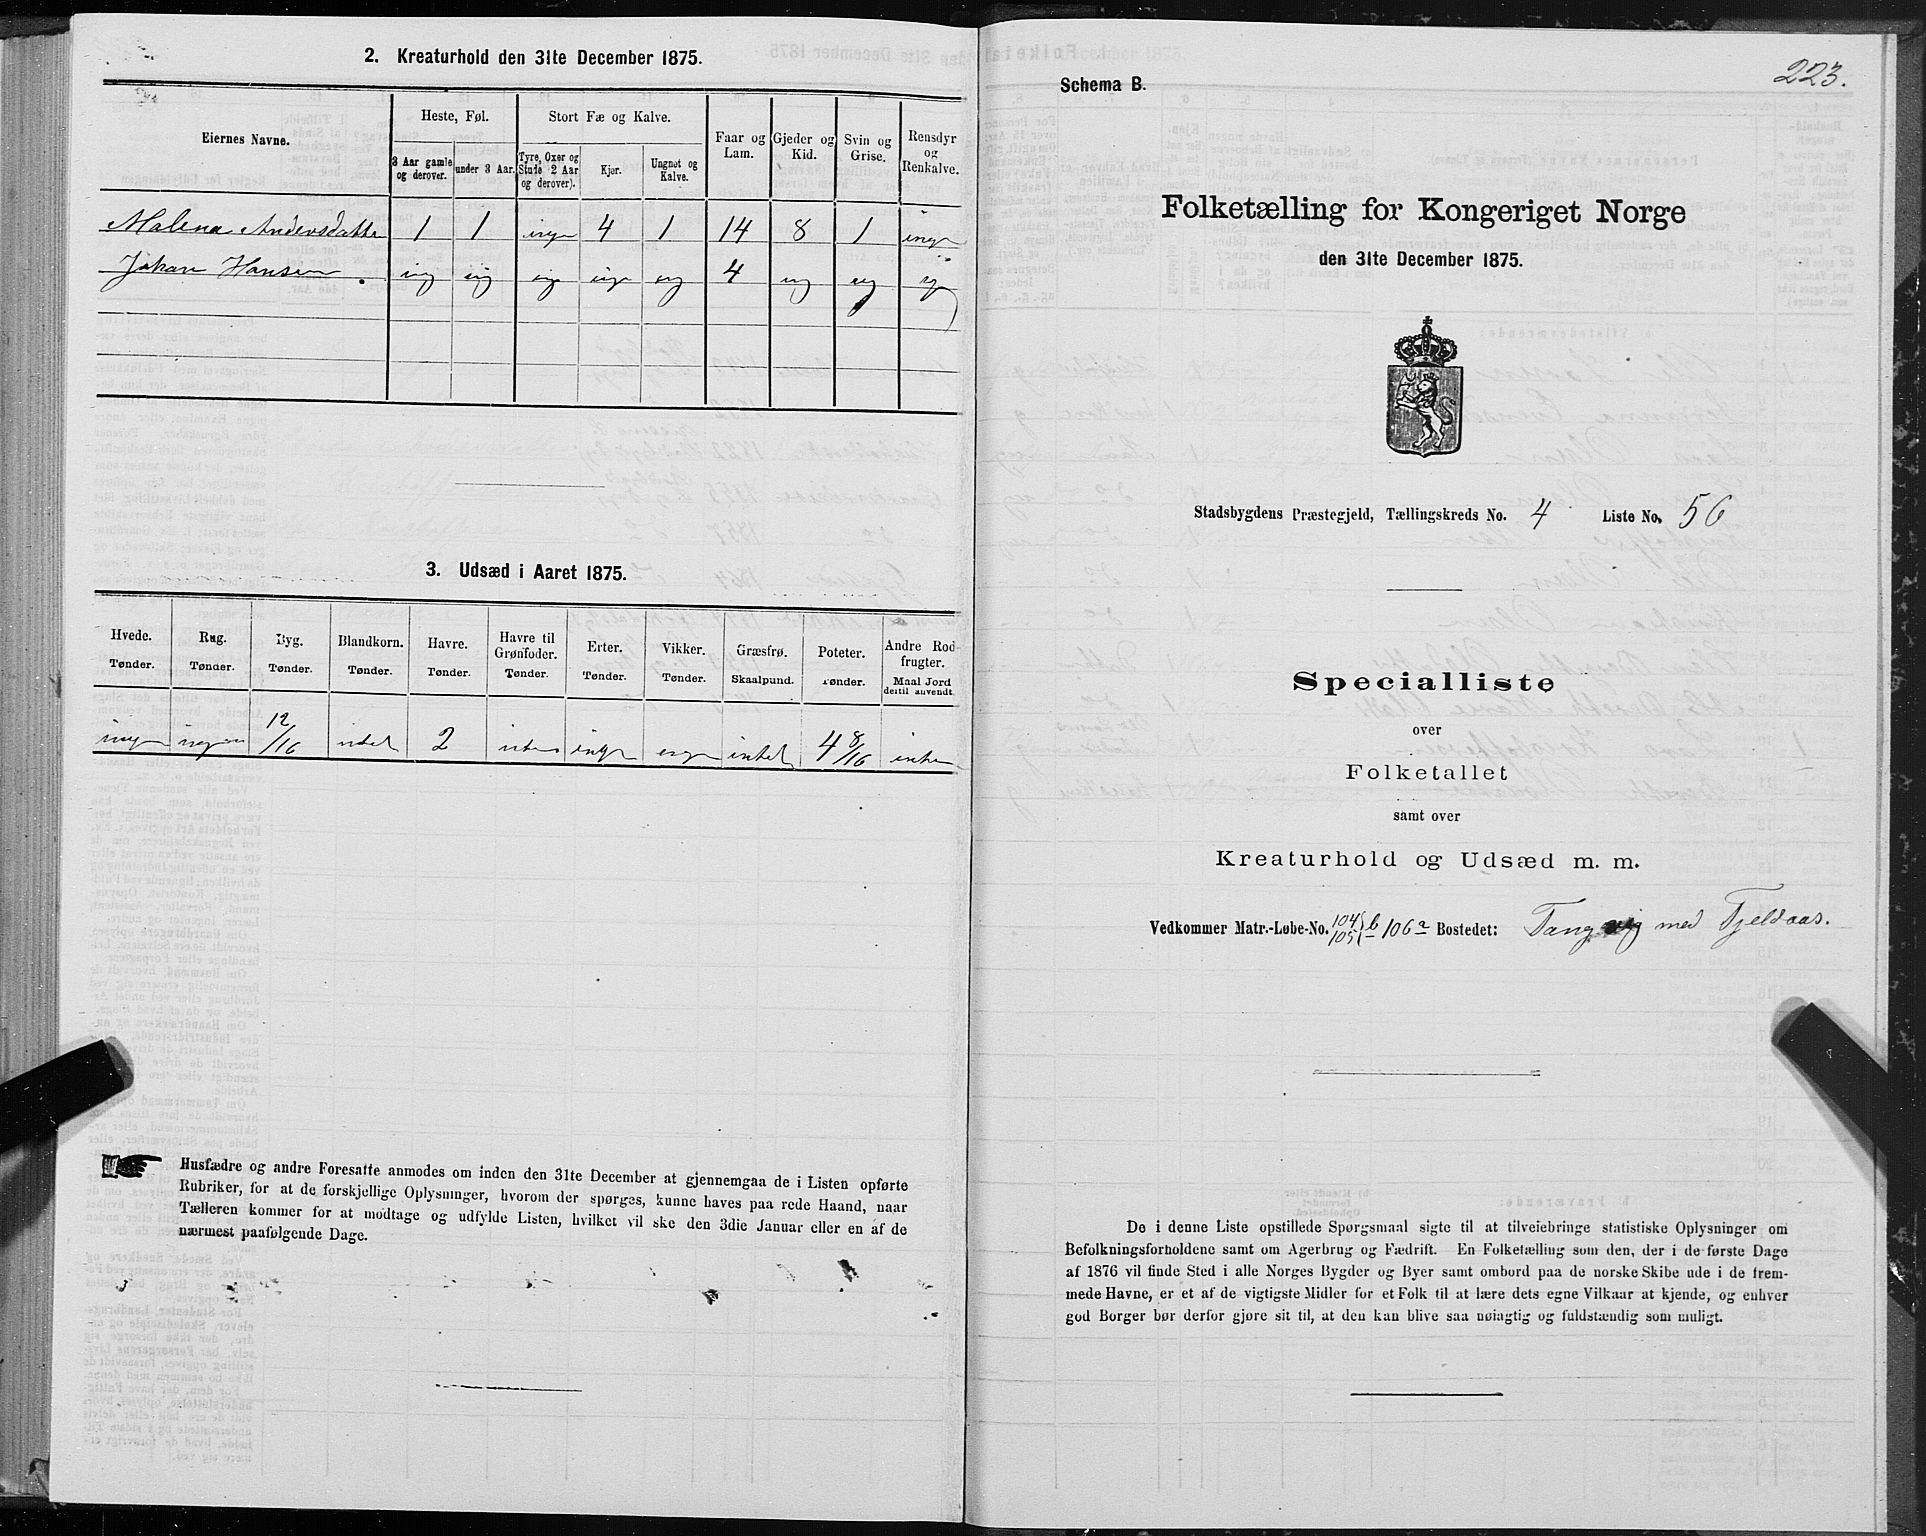 2. Kreaturhold den 31te December 1875.
Eiernes Navne.
Heste, Føl.
Stort Fæ og Kalve.
Faar og Lam.
Gjeder og Kid.
Svin og Grise.
Rensdyr og Renkalve.
3 Aar gamle og derover.
under 3 Aar.
Tyre, Oxer og Stude (2 Aar og derover).
Kjør.
Ungnøt og Kalve.
Malena Andersdatter 1 1 ingen 4 1 14 8 1 ingen
Johan Hansen ing ing ing inge ing 4 ing ing ing
3. Udsæd i Aaret 1875.
Hvede. Rug. Byg. Blandkorn. Havre. Havre til Grønfoder. Erter. Vikker. Græsfrø. Poteter. Andre Rodfrugter.
Tønder. Tønder. Tønder. Tønder. Tønder. Tønder. Tønder. Tønder. Skaalpund. Tønder. Maal Jord dertil anvendt.
ingen ingen 12/16 intet 2 inten inge inge intet 4 8/16 inten
Husfædre og andre Foresatte anmodes om inden den 31te December at gjennemgaa de i Listen opførte
Rubriker, for at de forskjellige Oplysninger, hvorom der spørges, kunne haves paa rede Haand, naar
Tælleren kommer for at modtage og udfylde Listen, hvilket vil ske den 3die Januar eller en af de
nærmest paafølgende Dage.
223.
Schema B.
Folketælling for Kongeriget Norge
den 31te December 1875.
Stadsbygdens Præstegjeld, Tællingskreds No. 4 Liste No. 56
Specialliste
over
Folketallet
samt over
Kreaturhold og Udsæd m. m.
Vedkommer Matr.-Løbe-No. 104 105 b 106a Bostedet: Tangvig med Fjeldaas.
De i denne Liste opstillede Spørgsmaal sigte til at tilveiebringe statistiske Oplysninger om
Befolkningsforholdene samt om Agerbrug og Fædrift. En Folketælling som den, der i de første Dage
af 1876 vil finde Sted i alle Norges Bygder og Byer samt ombord paa de norske Skibe ude i de frem-
mede Havne, er et af de vigtigste Midler for et Folk til at lære dets egne Vilkaar at kjende, og enhver
god Borger bør derfor gjøre sit til, at den kan blive saa nøiagtig og fuldstændig som muligt.